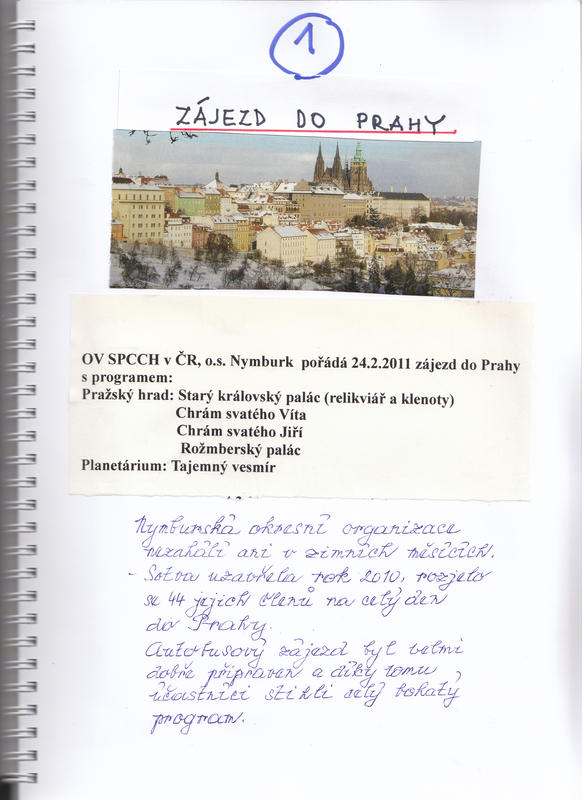 1
ZÁJEZD DO PRAHY
OV SPCCH v ČR, o.s. Nymburk pořádá 24.2.2011 zájezd do Prahy
s programem:
Pražský hrad: Starý královský palác (relikviář a klenoty)
Chrám svatého Víta
Chrám svatého Jiří
Rožmberský palác
Planetárium: Tajemný vesmír
Nymburská okresní organizace
nezahálí ani v zimních měsících.
- Sotva uzavřela rok 2010, rozjelo
se 44 jejich členů na celý den
do Prahy.
Autobusový zájezd byl velmi
dobře připraven a díky tomu
účastníci stihli celý bohatý
program.